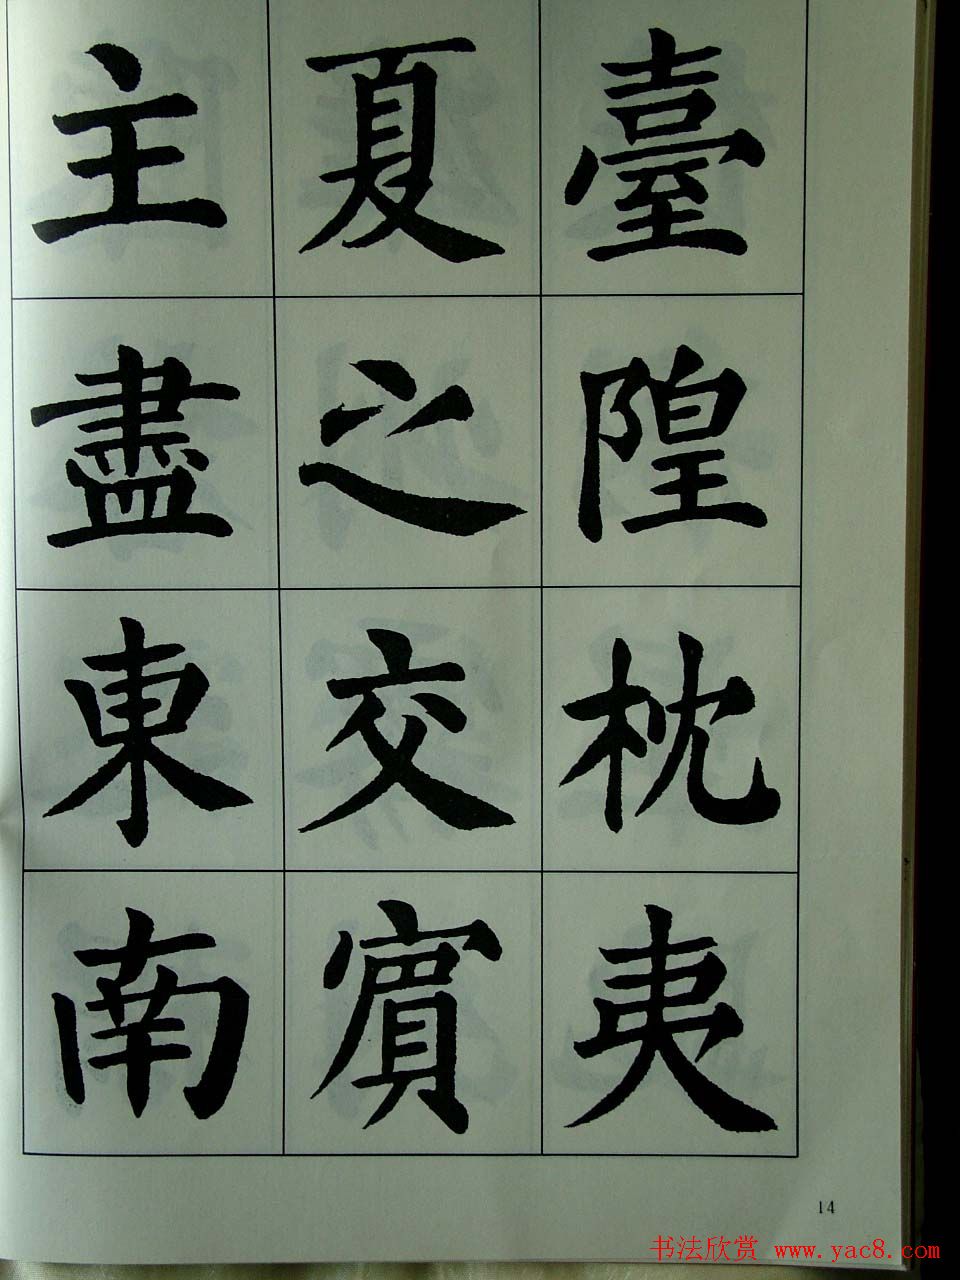 臺隍枕夷
夏之交賔
主盡東南
14
书法欣赏 www.yac8.com